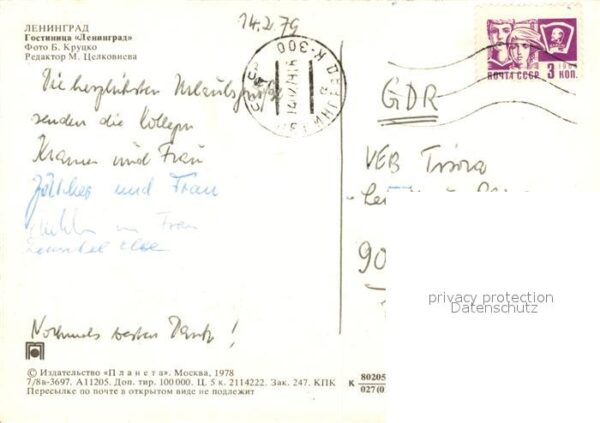 ЛЕНИНГРАД
Гостиница «Ленинград»
Фото Б. Круцко
Редактор М. Целковнева
14.2.79
К-300
ПОЧТА СССР 3 КОП.
Die herzlichsten Urlaubsgrüße
senden die Kollegen
Kramer und Frau
und Frau
Frau
Nochmals besten Dank!
GDR
VEB
90
privacy protection
Datenschutz
© Издательство «Планета». Москва, 1978
7/8а-3697. А11205. Доп. тир. 100 000. Ц. 5 к. 2114222. Зак. 247. КПК
Пересылке по почте в открытом виде не подлежит
К 80205
027(0